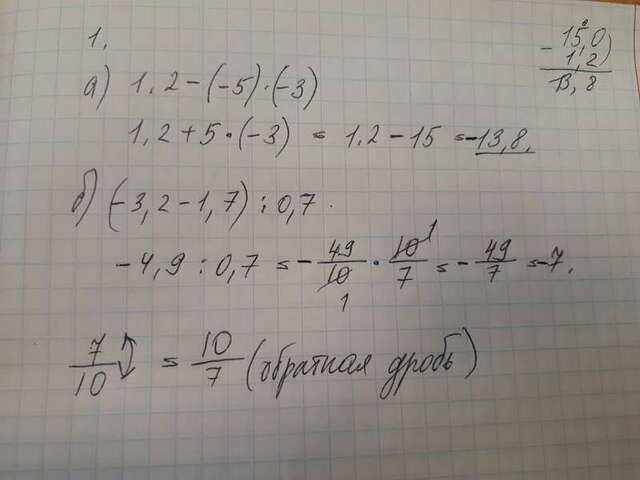 1.
а) 1,2 - (-5) · (-3)
1,2 + 5 · (-3) = 1,2 - 15 = -13,8.
- 15,0
1,2)
13,8
б) (-3,2 - 1,7) : 0,7.
-4,9 : 0,7 = - 49/10 · 10/7 = - 49/7 = -7.
1 1
7/10 = 10/7 (обратная дробь)